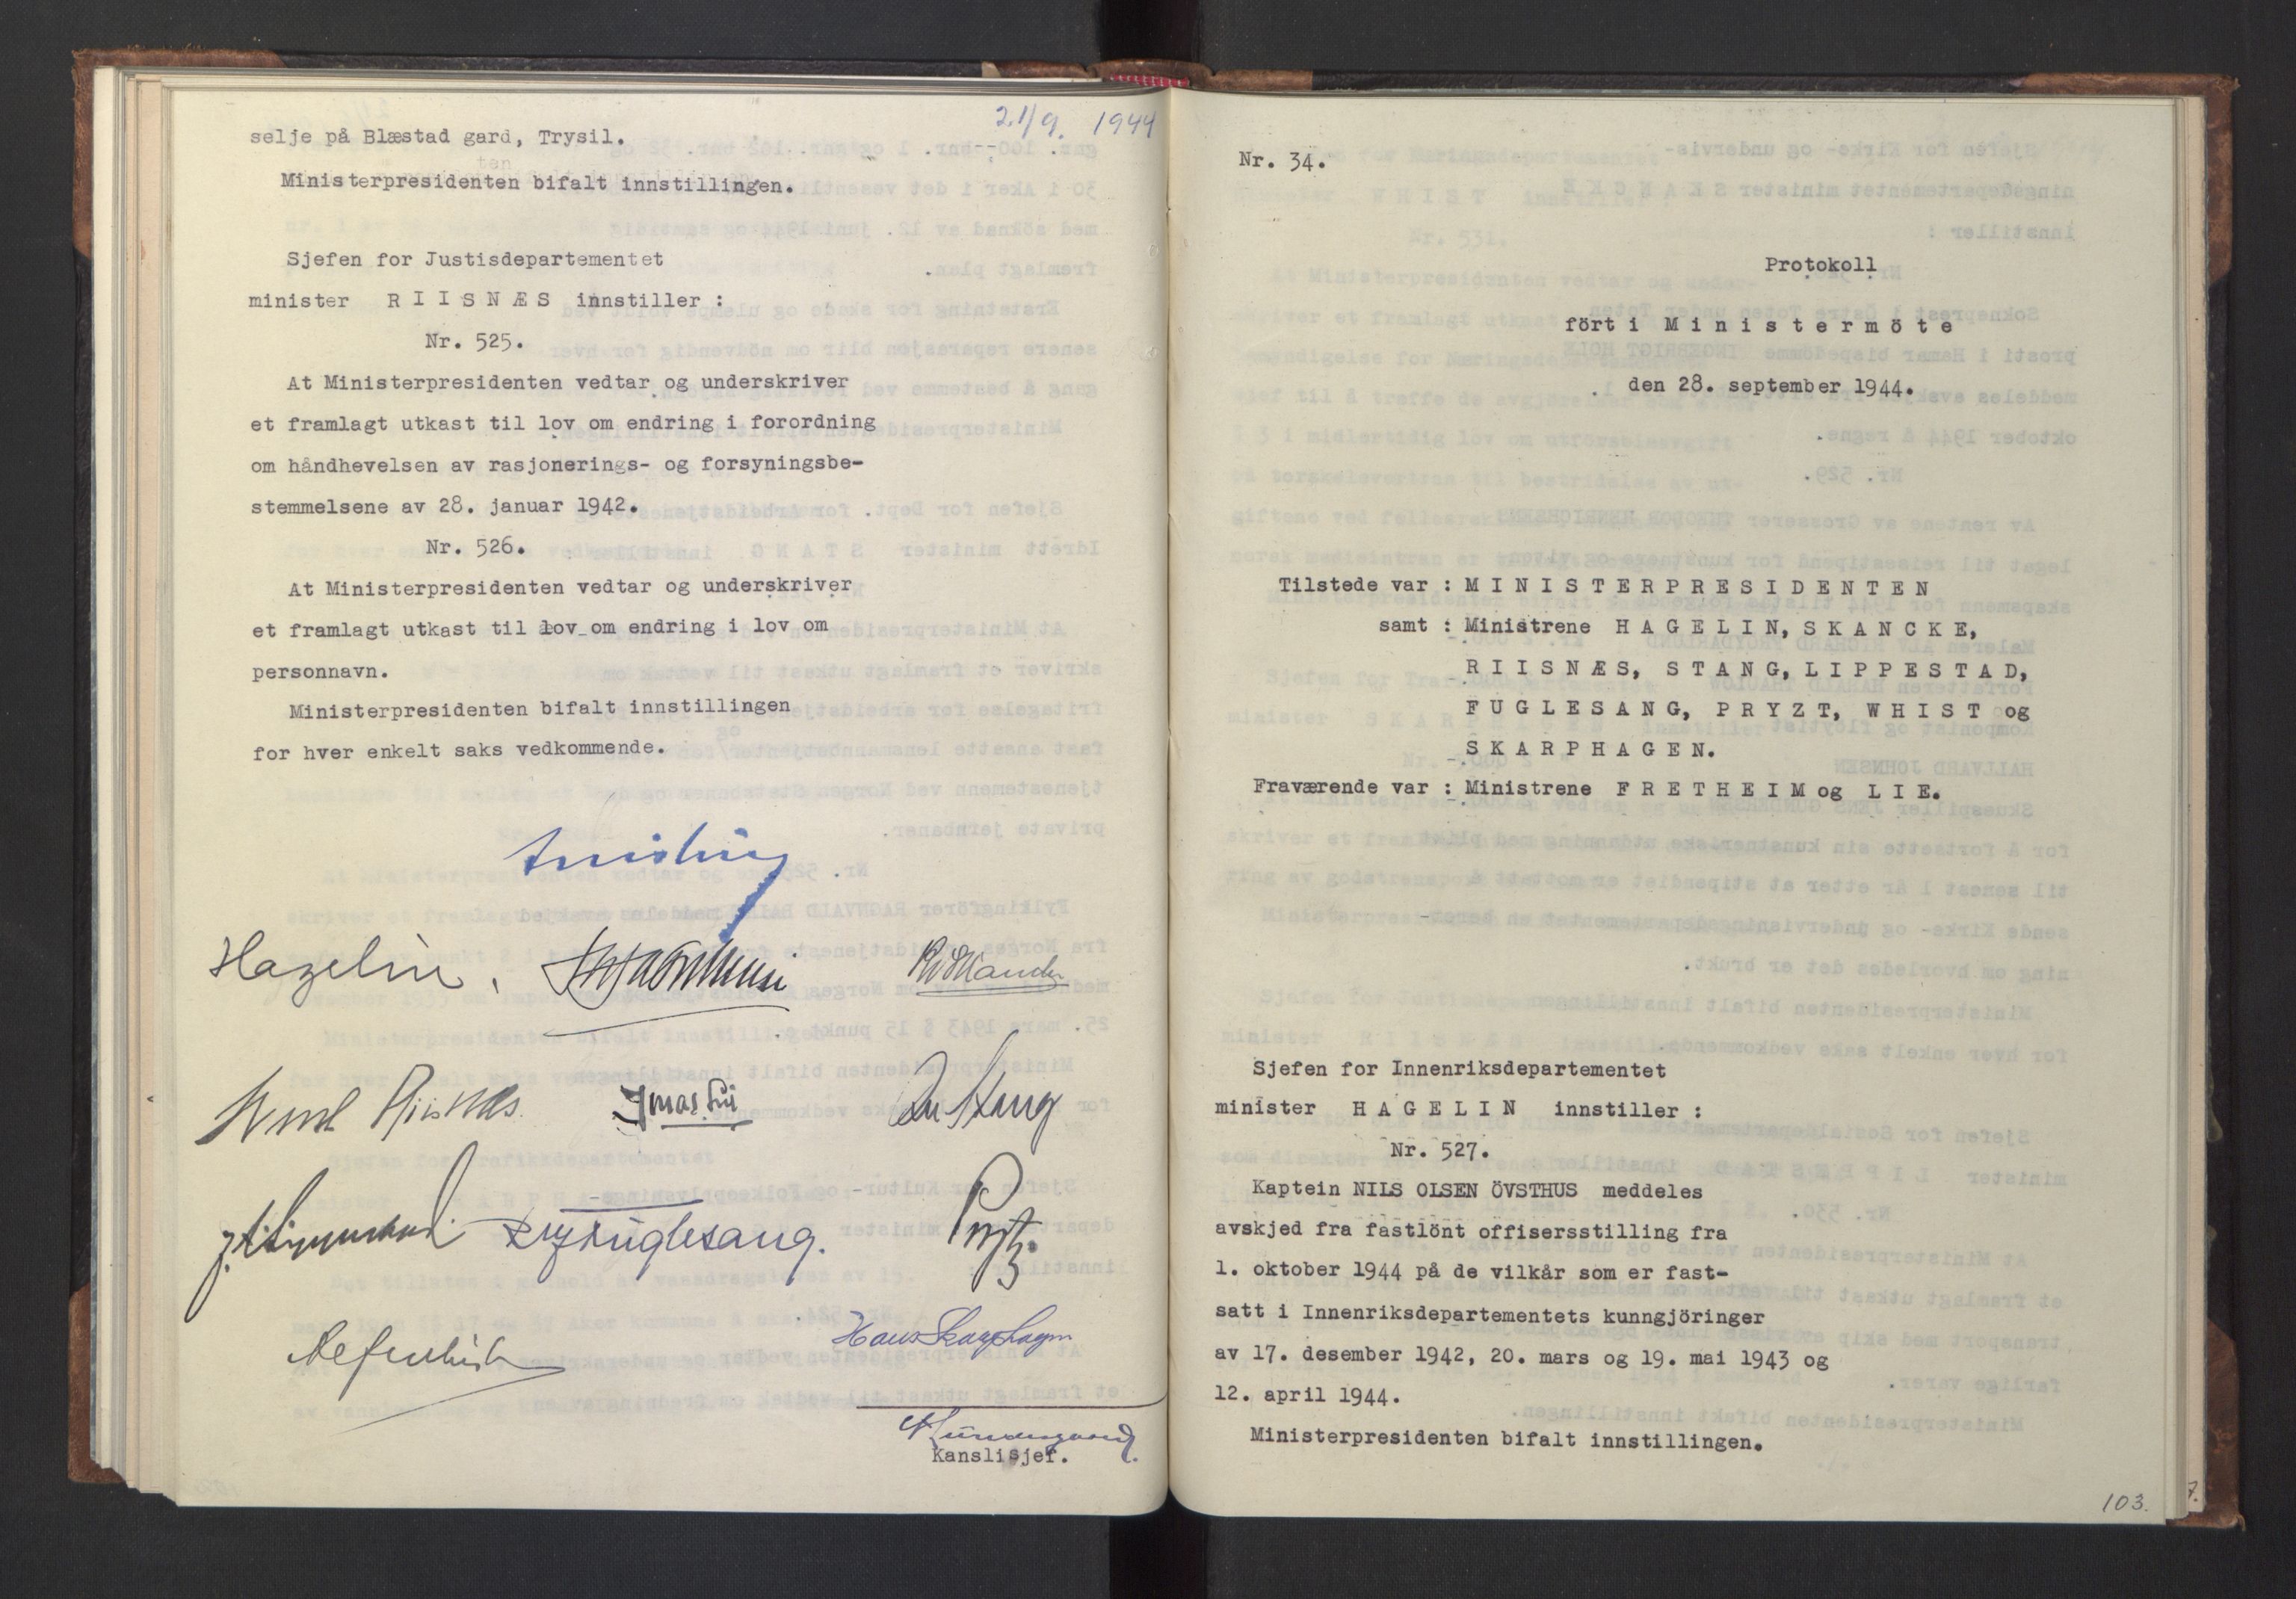 21/9. 1944
selje på Blæstad gard, Trysil.
Ministerpresidenten bifalt innstillingen.
Sjefen for Justisdepartementet
minister R I I S N Æ S innstiller :
Nr. 525.
At Ministerpresidenten vedtar og underskriver
et framlagt utkast til lov om endring i forordning
om håndhevelsen av rasjonerings- og forsyningsbe-
stemmelsene av 28. januar 1942.
Nr. 526.
At Ministerpresidenten vedtar og underskriver
et framlagt utkast til lov om endring i lov om
personnavn.
Ministerpresidenten bifalt innstillingen
for hver enkelt saks vedkommende.
Quisling
Hagelin.
Riisnæs.
Stang
Fuglesang.
Prytz.
Hans Skarphagen
Kanslisjef.
Nr. 34.
Protokoll
fört i M i n i s t e r m ö t e
den 28. september 1944.
Tilstede var : M I N I S T E R P R E S I D E N T E N
samt : Ministrene H A G E L I N, S K A N C K E,
R I I S N Æ S, S T A N G, L I P P E S T A D,
F U G L E S A N G, P R Y Z T, W H I S T og
S K A R P H A G E N.
Fraværende var : Ministrene F R E T H E I M og L I E.
Sjefen for Innenriksdepartementet
minister H A G E L I N innstiller :
Nr. 527.
Kaptein NILS OLSEN ÖVSTHUS meddeles
avskjed fra fastlönt offisersstilling fra
1. oktober 1944 på de vilkår som er fast-
satt i Innenriksdepartementets kunngjöringer
av 17. desember 1942, 20. mars og 19. mai 1943 og
12. april 1944.
Ministerpresidenten bifalt innstillingen.
103.